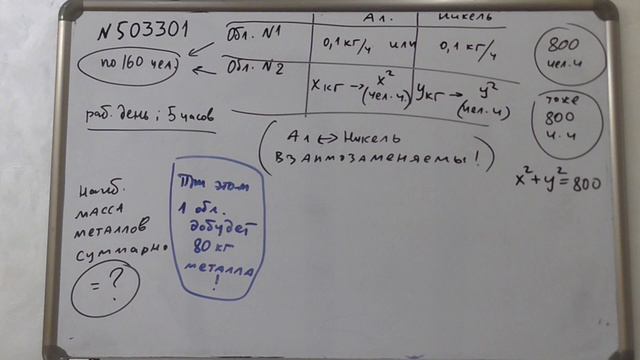 N 503301
Ал. Никель
Обл. N1 0,1 кг/ч или 0,1 кг/ч
800
чел.ч
по 160 чел.
Обл. N2 x кг → x² (чел.ч.) y кг → y² (чел.ч)
тоже
800
ч.ч
раб. день; 5 часов
(Ал ↔ Никель
взаимозаменяемы!)
x² + y² = 800
Наиб.
масса
металлов
суммарно
= ?
При этом
1 обл.
добудет
80 кг
металла
!